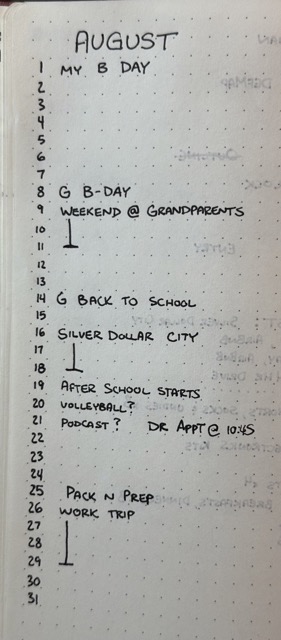 AUGUST
1 MY B DAY
2
3
4
5
6
7
8 G B-DAY
9 WEEKEND @ GRANDPARENTS
10
11
12
13
14 G BACK TO SCHOOL
15
16 SILVER DOLLAR CITY
17
18
19 AFTER SCHOOL STARTS
20 VOLLEYBALL?
21 PODCAST? DR APPT @ 10:45
22
23
24
25 PACK N PREP
26 WORK TRIP
27
28
29
30
31